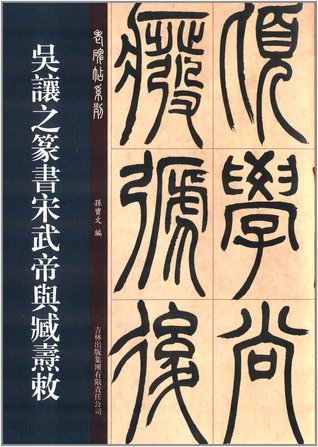 頃學尚
癈弛後
老碑帖系列
孫寶文 編
吉林出版集團有限責任公司
吳讓之篆書宋武帝與臧燾敕